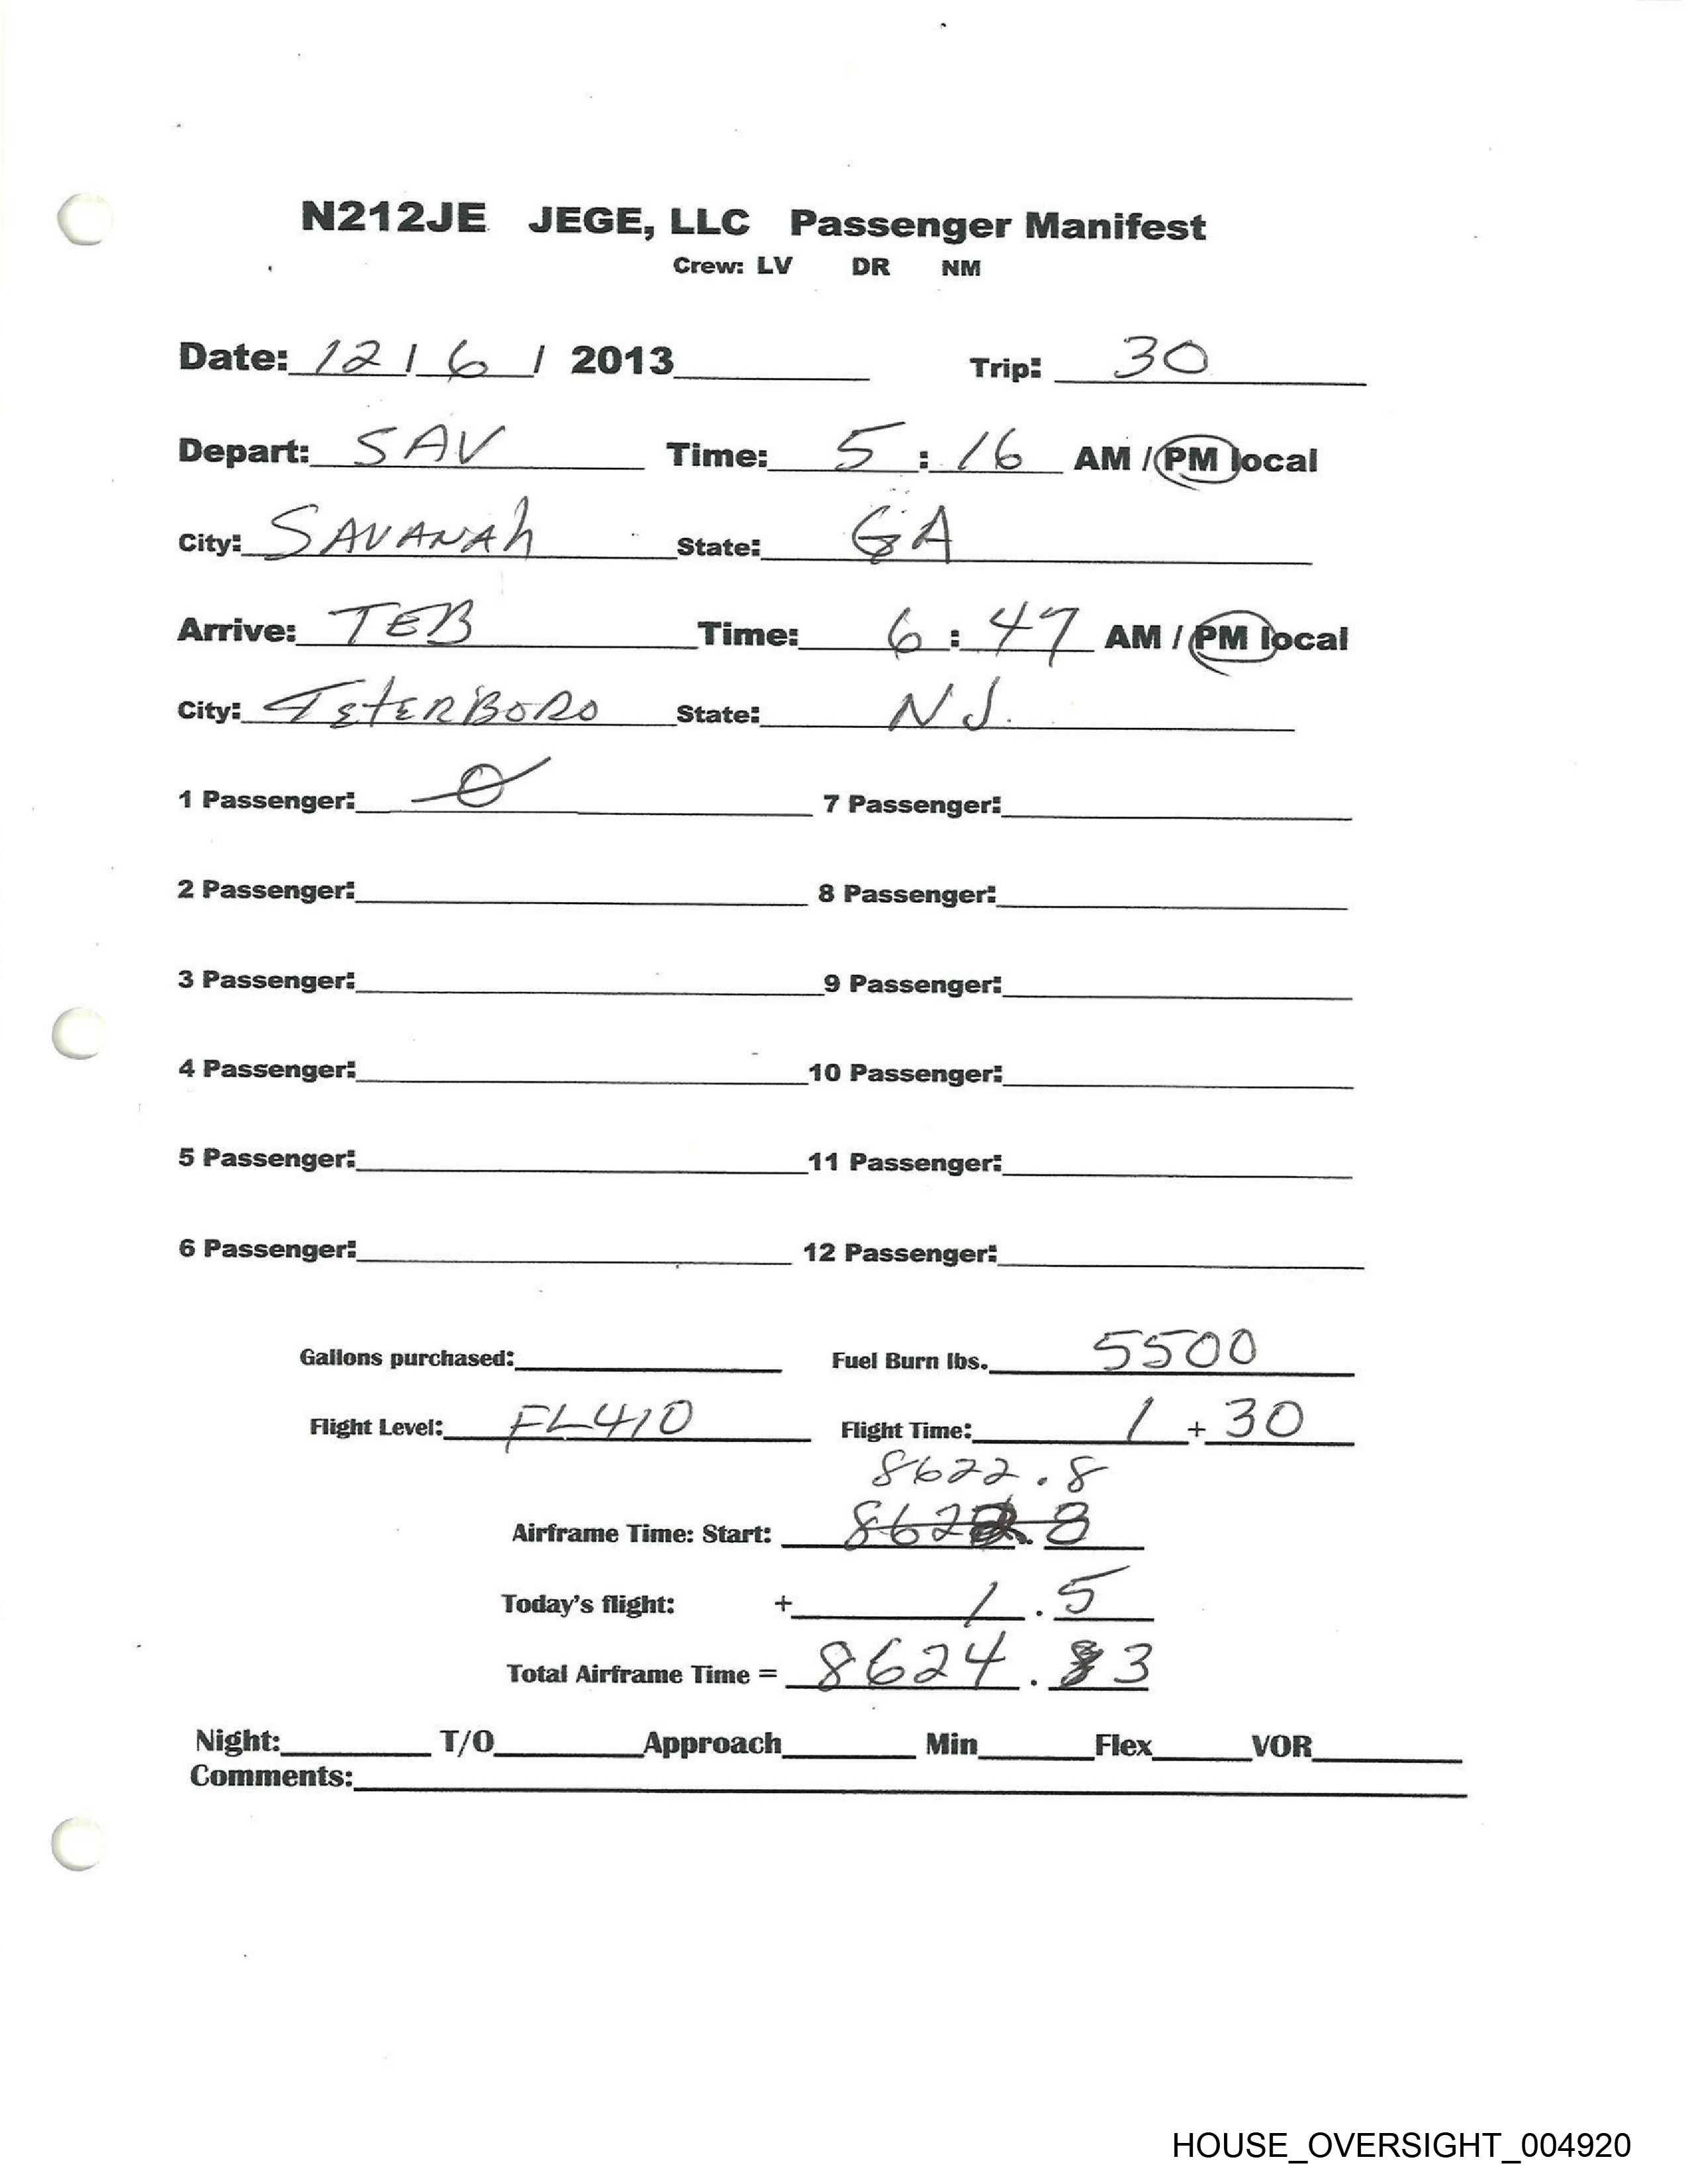 N212JE JEGE, LLC Passenger Manifest
Crew: LV DR NM
Date: 12 / 6 / 2013 Trip: 30
Depart: SAV Time: 5 : 16 AM / PM local
City: SAVANAh State: GA
Arrive: TEB Time: 6 : 47 AM / PM local
City: TETERBORO State: NJ.
1 Passenger: 0 7 Passenger:
2 Passenger: 8 Passenger:
3 Passenger: 9 Passenger:
4 Passenger: 10 Passenger:
5 Passenger: 11 Passenger:
6 Passenger: 12 Passenger:
Gallons purchased: Fuel Burn lbs. 5500
Flight Level: FL410 Flight Time: 1 + 30
8622.8
Airframe Time: Start: 862 . 8
Today's flight: + 1 . 5
Total Airframe Time = 8624 . 3
Night: T/O Approach Min Flex VOR
Comments:
HOUSE_OVERSIGHT_004920